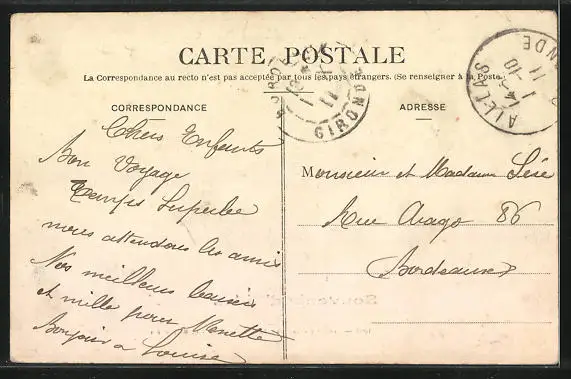 CARTE POSTALE
La Correspondance au recto n'est pas acceptée par tous les pays étrangers. (Se renseigner à la Poste.)
CORRESPONDANCE
Chers Enfants
Bon Voyage
Temps Superbe
nous attendons les amis
Nos meilleurs baisers
et mille pour Nanette
Bonjour à Louise
ADRESSE
Monsieur et Madame Lésé
Rue Arago 86
Bordeaux
GIRONDE
AILLAS
Souvenir